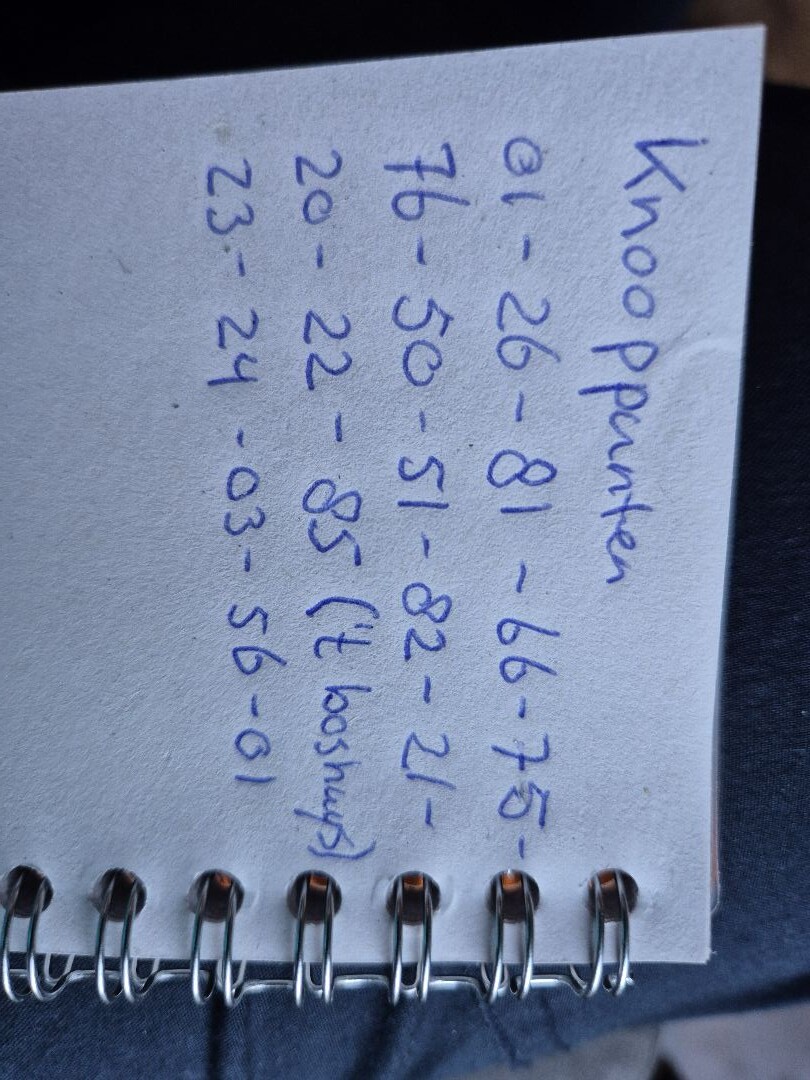 Knooppunten
01 - 26 - 81 - 66 - 75 -
76 - 50 - 51 - 82 - 21 -
20 - 22 - 85 ('t boshuys)
23 - 24 - 03 - 56 - 01